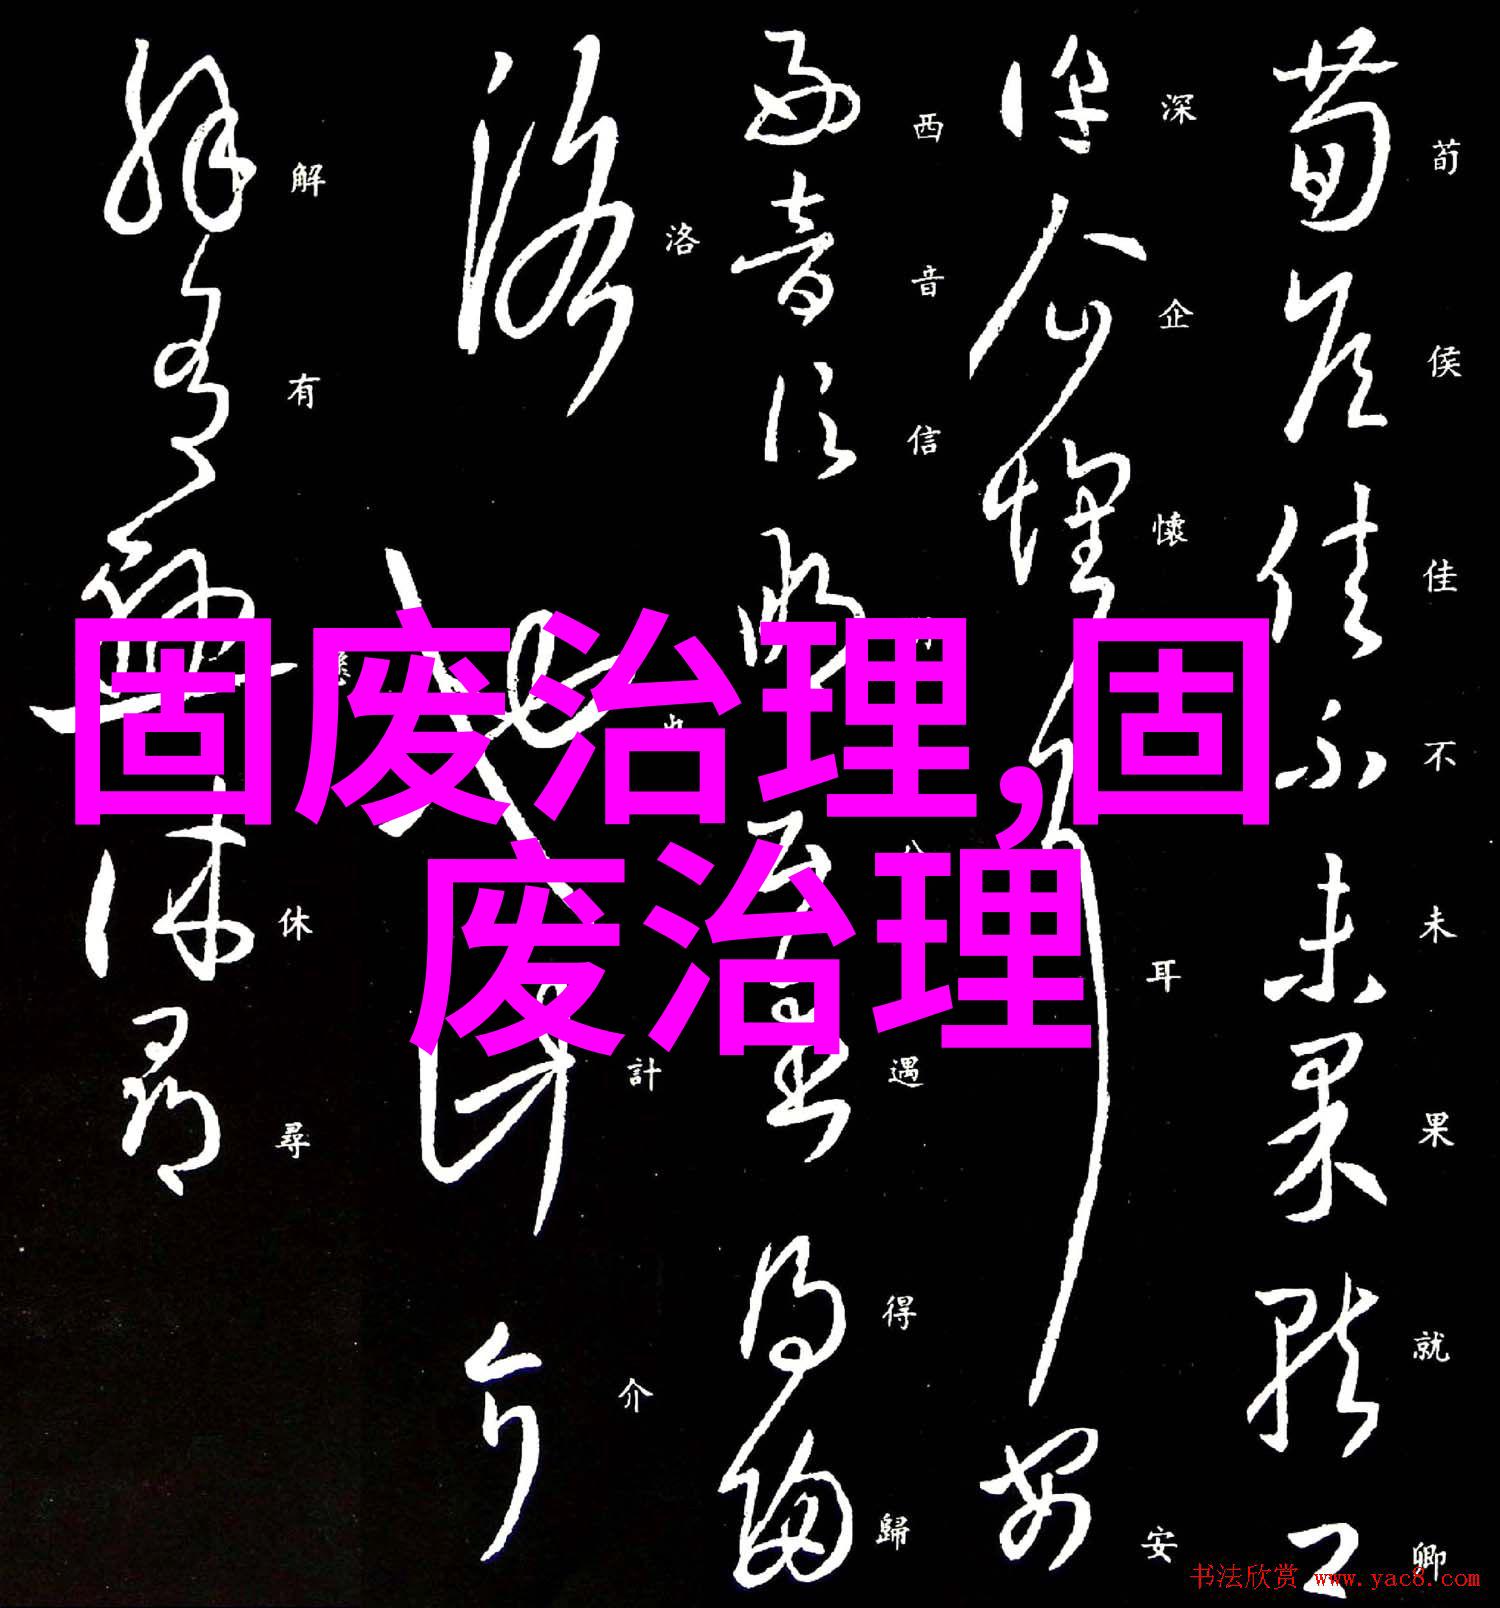 荀侯佳不未果就卿
深企懷耳安
西音信遇得歸
洛也計介
解有休尋
固废治理,固
废治理
书法欣赏 www.yac8.com